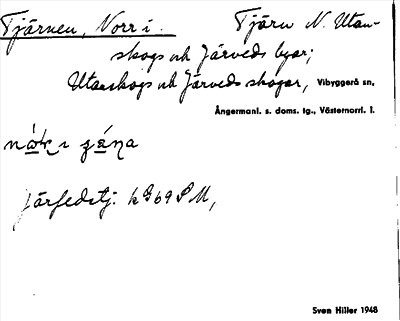 Tjärnen, Norr i. Tjärn N. Utan-
skogs och Järveds byar;
Utanskogs och Järveds skogar, Vibyggerå sn,
Ångermanl. s. doms. tg., Västernorrl. l.
i
Järfedstj: k G 69 S M,
Sven Hiller 1948